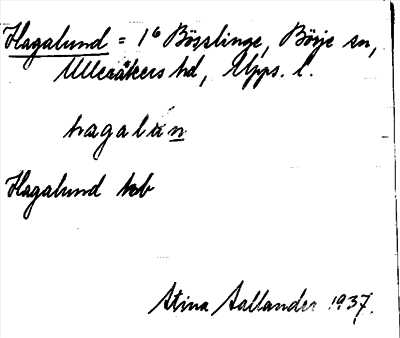 Hagalund = 1⁶ Bösslinge, Börje sn,
Ulleråkers hd, Upps. l.
hagalun
Hagalund
Stina Sallander 1937.